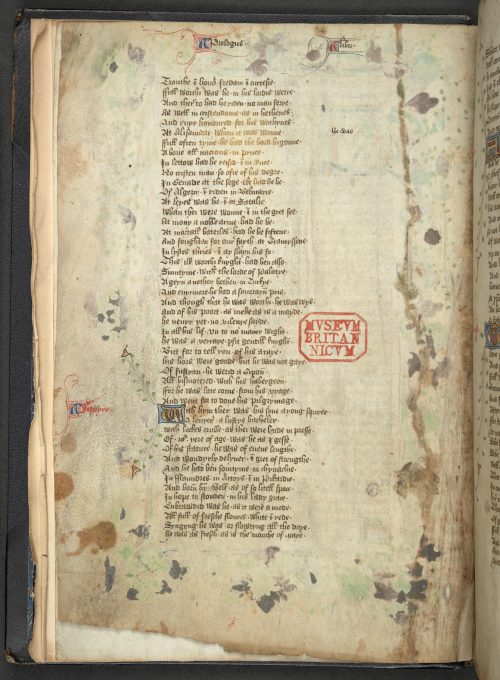 Prologus
Trouthe & honour fredam & curtesie
ffull worthi was he in his lordis werre
And ther to had he riden no man ferre
As well in cristendome as in hethenes
And euyr honoured for his worthynes
At Alisaundre whan it was wonne
ffull often tyme he had the bord bigonne
Aboue all nacions in pruce
In lettow had he reised & in Ruce
No cristen man so ofte of his degre
In Gernade at the sege had he be
Of Algezir & riden in Belmarie
At leyes was he & in Satalie
Whan ther were wonne & in the gret see
At mony a noble arme had he be
At mortall batailes had he be fiftene
And foughten for our fayth at Tramyssene
In lystes thries & ay slayn his fo
This ilk worthi knyght had ben also
Sumtyme with the lorde of Palatye
Ageyn another hethen in Turkye
And euyrmore he had a souerayn pris
And though that he was worthi he was wys
And of his poort as meke as is a mayde
he neuyr yet no vilenye sayde
In all his lif vn to no maner wight
he was a verray parfit gentill knyght
But for to tell you of his araye
his hors were goode but he was not gaye
Of fustyan he wered a Gipon
All bismotered with his habergeon
for he was late come from his viage
And went for to done his pilgrymage
With hym ther was his sone a yong squyer
A louyer & a lustye bacheller
with lockes crulle as ther were laide in presse
Of yere of age was he as y gesse
Of his stature he was of euene lengthe
And wondyrly delyuer & gret of strengthe
And he had ben sumtyme in chyuachie
In fflaundres in Artoys & in Picardie
And born hym well as of so litell space
In hope to stonden in his lady grace
Enbrawdid was he as it were a mede
All full of fresshe floures white & rede
Syngyng he was or flowtyng all the daye
he was as fressh as is the monthe of maye
MVSEVM
BRITAN
NICVM